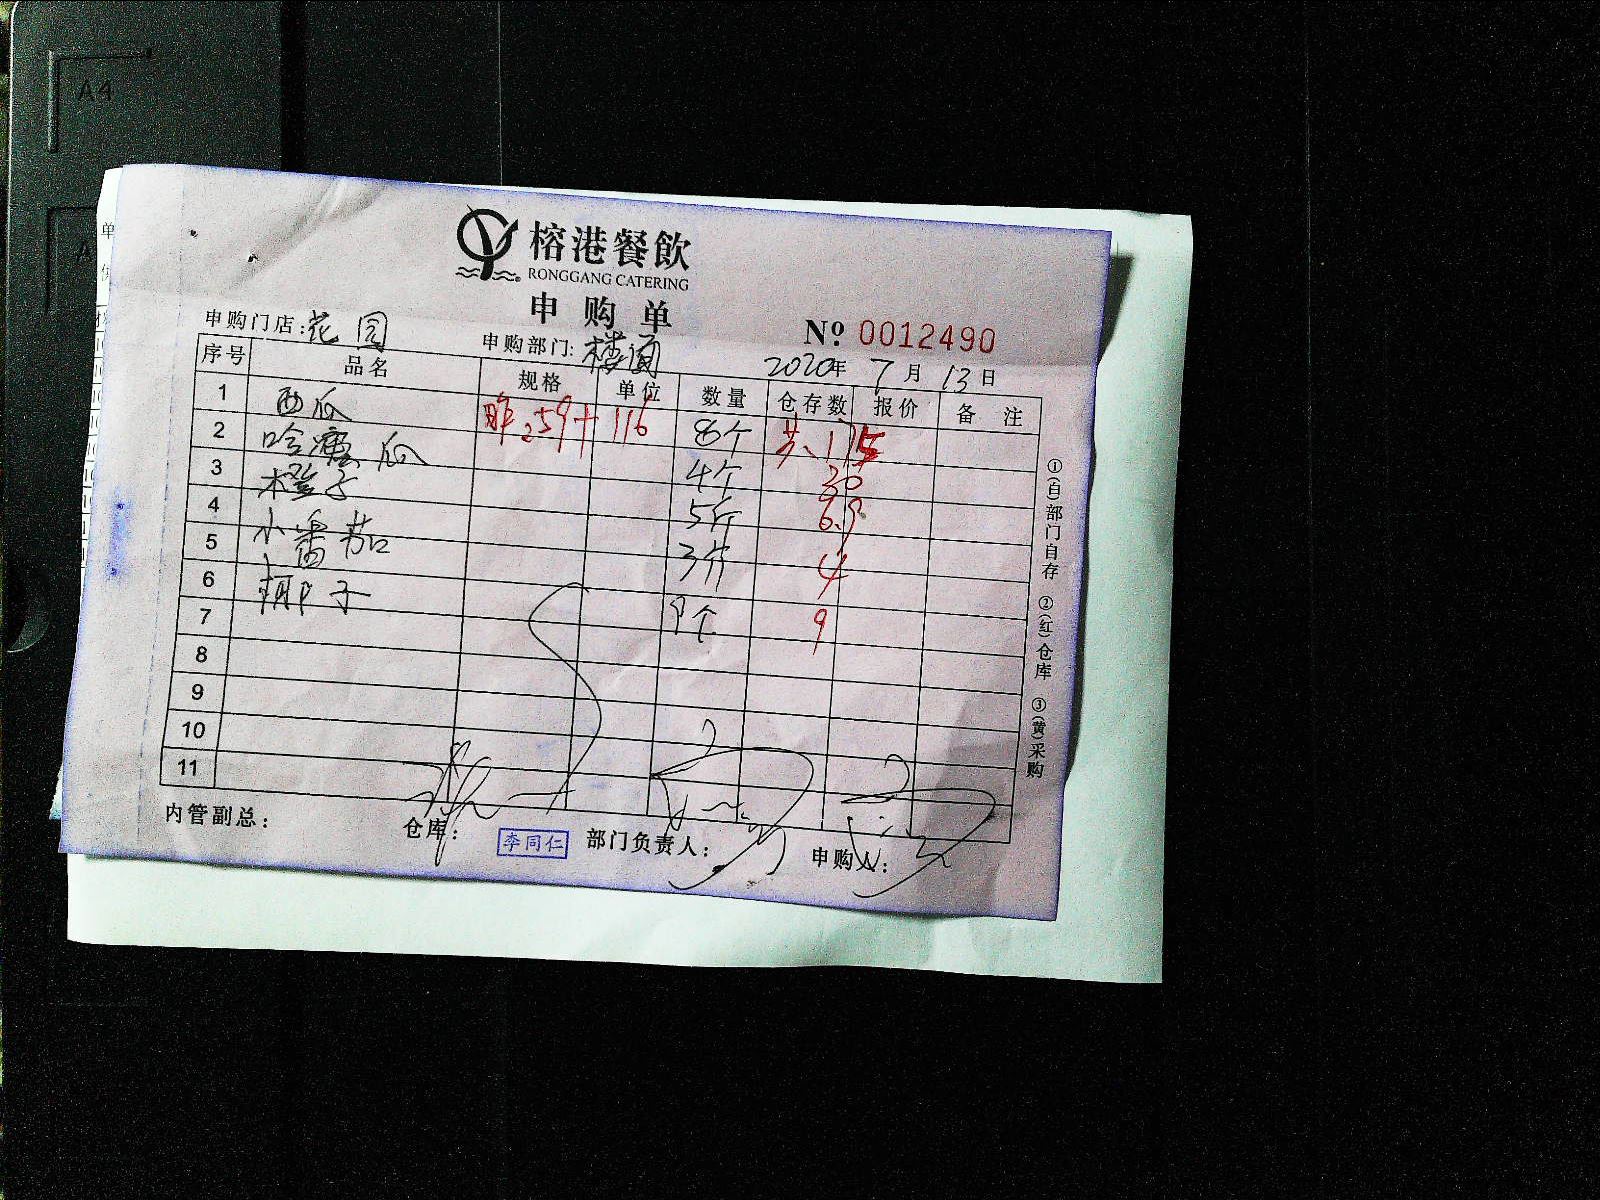 A4
榕港餐飲
RONGGANG CATERING
申购单
申购门店:花园
申购部门:楼面
№ 0012490
2020年7月13日
序号 品名 规格 单位 数量 仓存数 报价 备注
1 西瓜 昨 259+116 8个 共175
2 哈蜜瓜 4个 30
3 橙子 5斤 6.9
4 小番茄 3斤 4
5 椰子 9个 9
6
7
8
9
10
11
内管副总:
仓库:
李同仁
部门负责人:
申购人:
①(白)部门自存 ②(红)仓库 ③(黄)采购